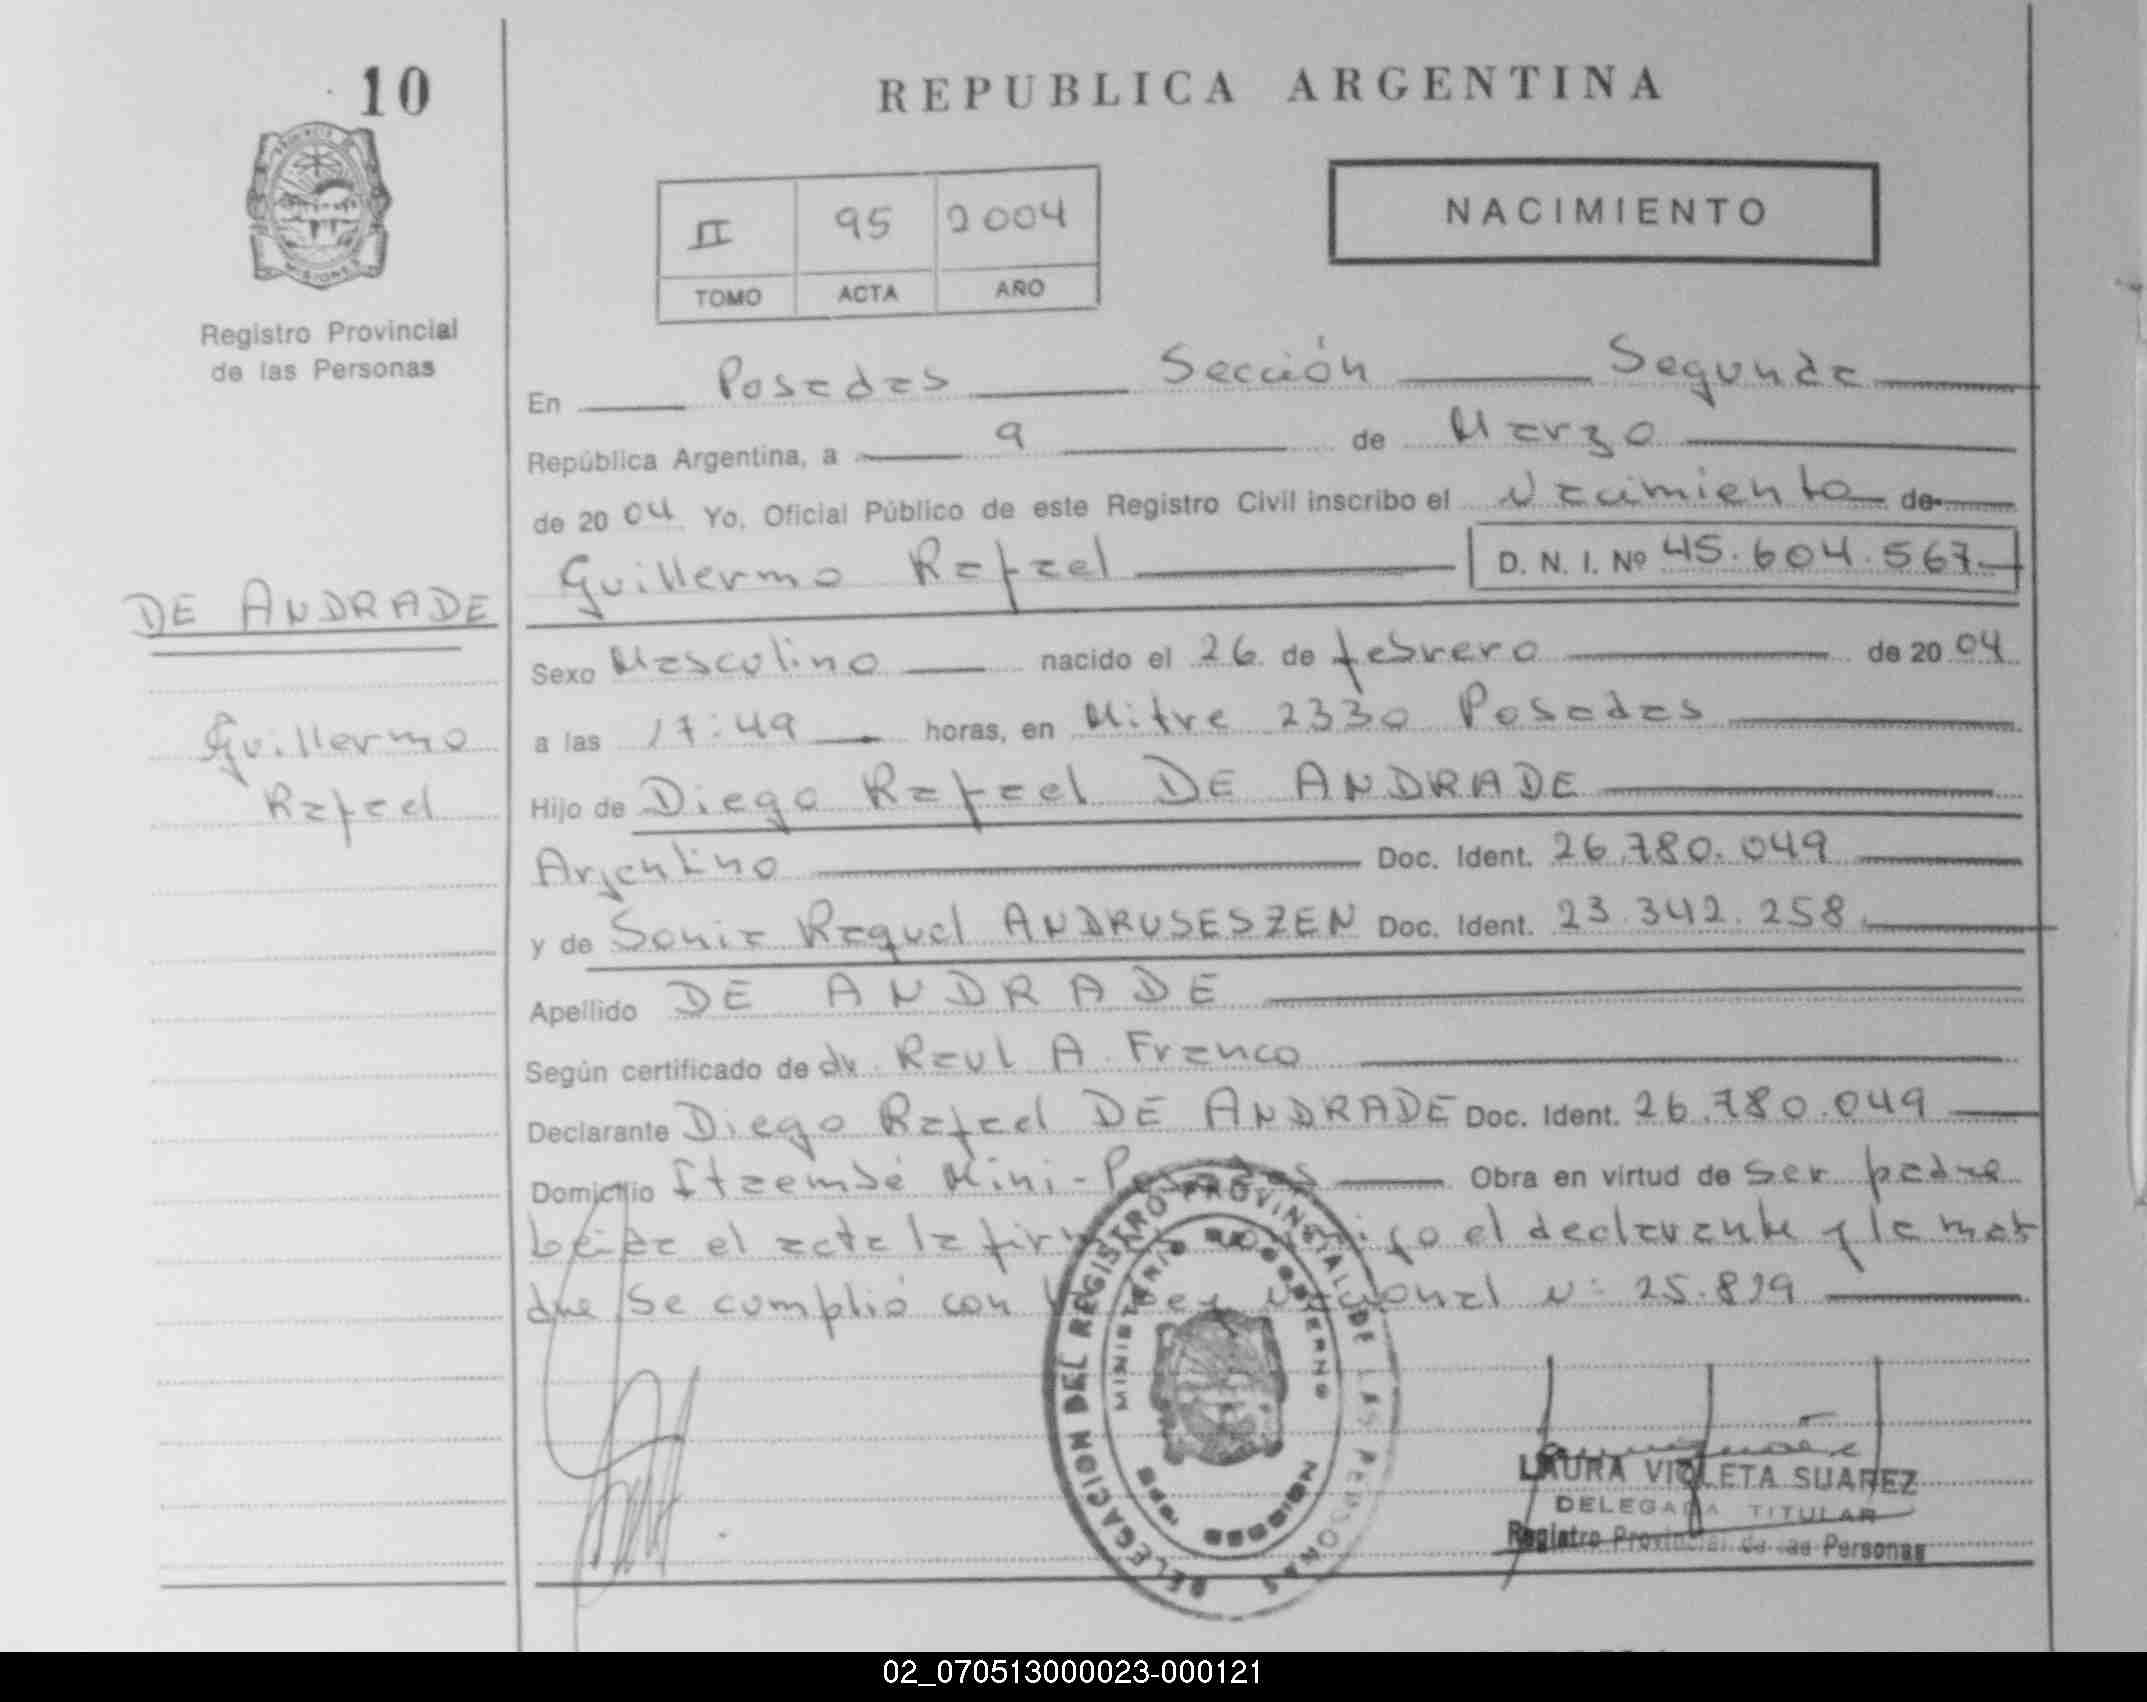 10
REPUBLICA ARGENTINA
PROVINCIA
MISIONES
Registro Provincial
de las Personas
II 95 2004
TOMO ACTA AÑO
NACIMIENTO
En Posadas Sección Segunda
República Argentina, a 9 de Marzo
de 2004 Yo, Oficial Público de este Registro Civil inscribo el Nacimiento de
Guillermo Rafael D. N. I. Nº 45.604.567
DE ANDRADE
Guillermo
Rafael
Sexo Masculino nacido el 26 de febrero de 2004
a las 17:49 horas, en Mitre 2330 Posadas
Hijo de Diego Rafael DE ANDRADE
Argentino Doc. Ident. 26.780.049
y de Sonia Raquel ANDRUSESZEN Doc. Ident. 23.342.258
Apellido DE ANDRADE
Según certificado de dr. Raul A. Franco
Declarante Diego Rafael DE ANDRADE Doc. Ident. 26.780.049
Domicilio Itaembé Mini-Posadas Obra en virtud de ser padre
Leida el acta la firma conmigo el declarante y la mat
dre se cumplió con la Ley Nacional N: 25.819
DELEGACION DEL REGISTRO PROVINCIAL DE LAS PERSONAS
MINISTERIO DE GOBIERNO
MISIONES
LAURA VIOLETA SUAREZ
DELEGADA TITULAR
Registro Provincial de las Personas
02_070513000023-000121